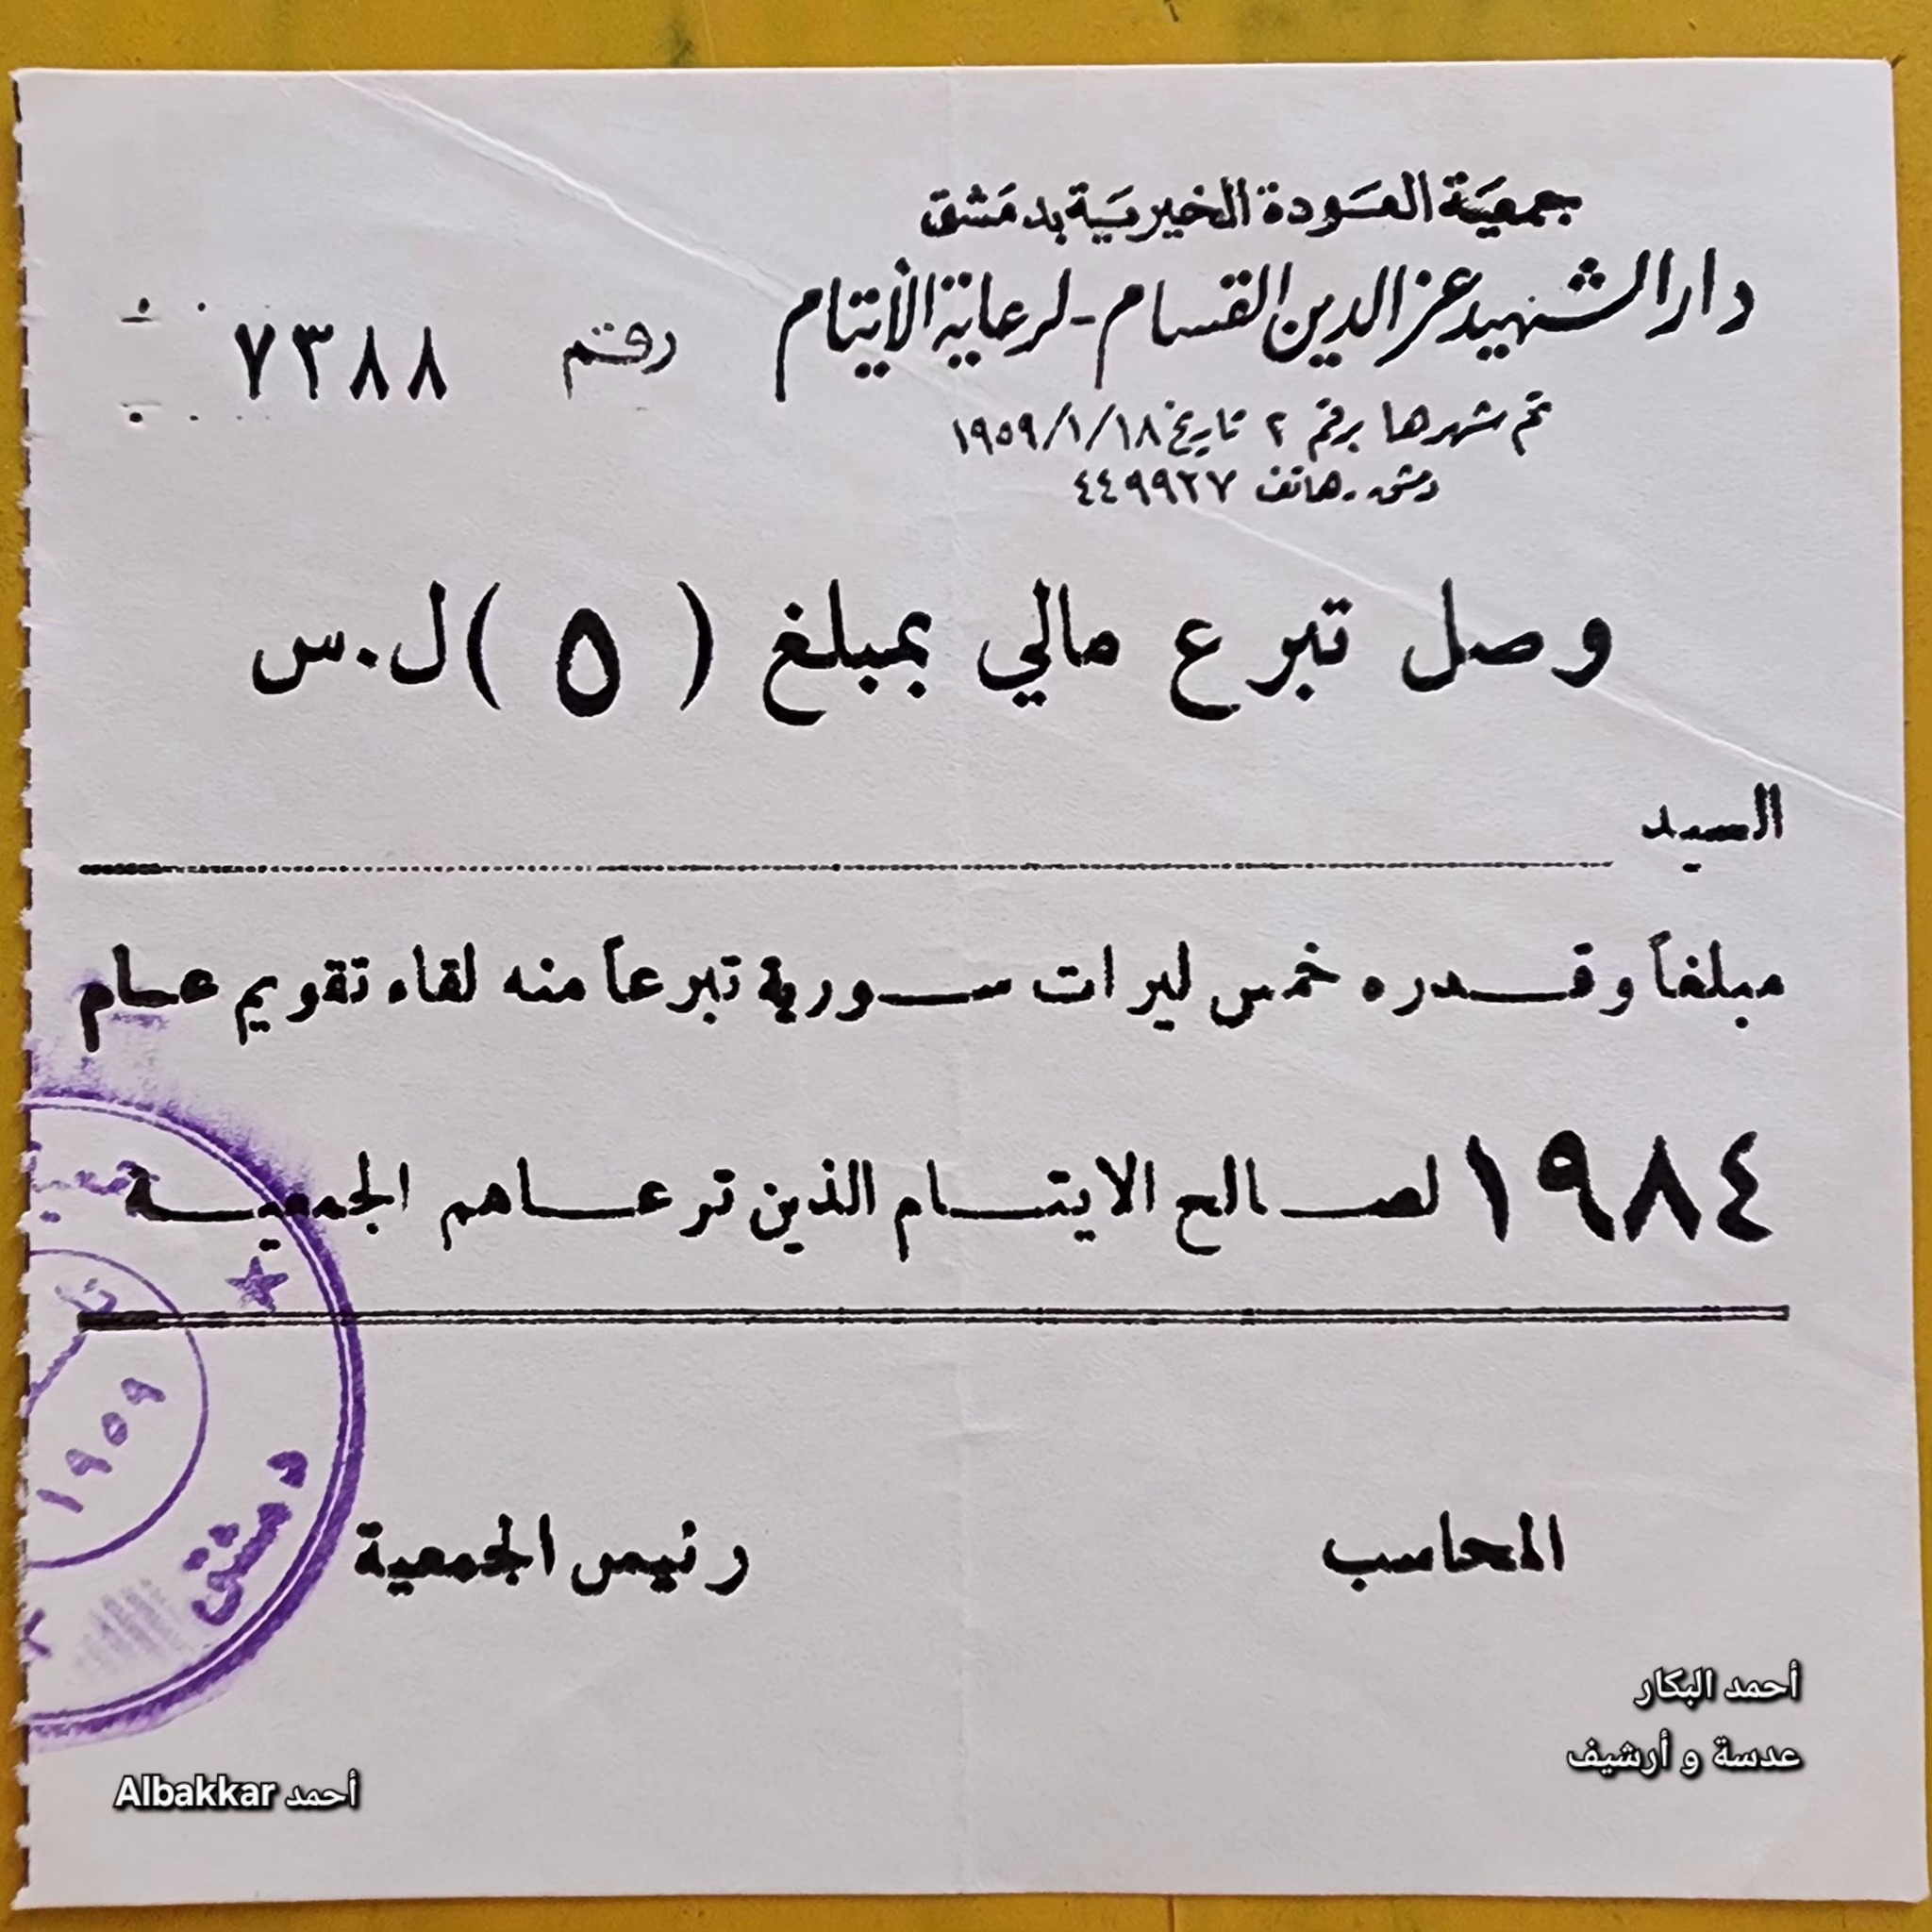 جمعية العودة الخيرية بدمشق
دار الشهيد عز الدين القسام - لرعاية الأيتام
رقم ٧٣٨٨
تم شهرها برقم ٢ تاريخ ١٩٥٩/١/١٨
دمشق - هاتف ٤٤٩٩٢٧
وصل تبرع مالي بمبلغ ( ٥ ) ل.س
السيد
مبلغاً وقدره خمس ليرات سورية تبرعاً منه لقاء تقويم عام
١٩٨٤ لصالح الايتام الذين ترعاهم الجمعية
المحاسب رئيس الجمعية
١٩٥٩
دمشق
أحمد البكار
عدسة و أرشيف
أحمد Albakkar